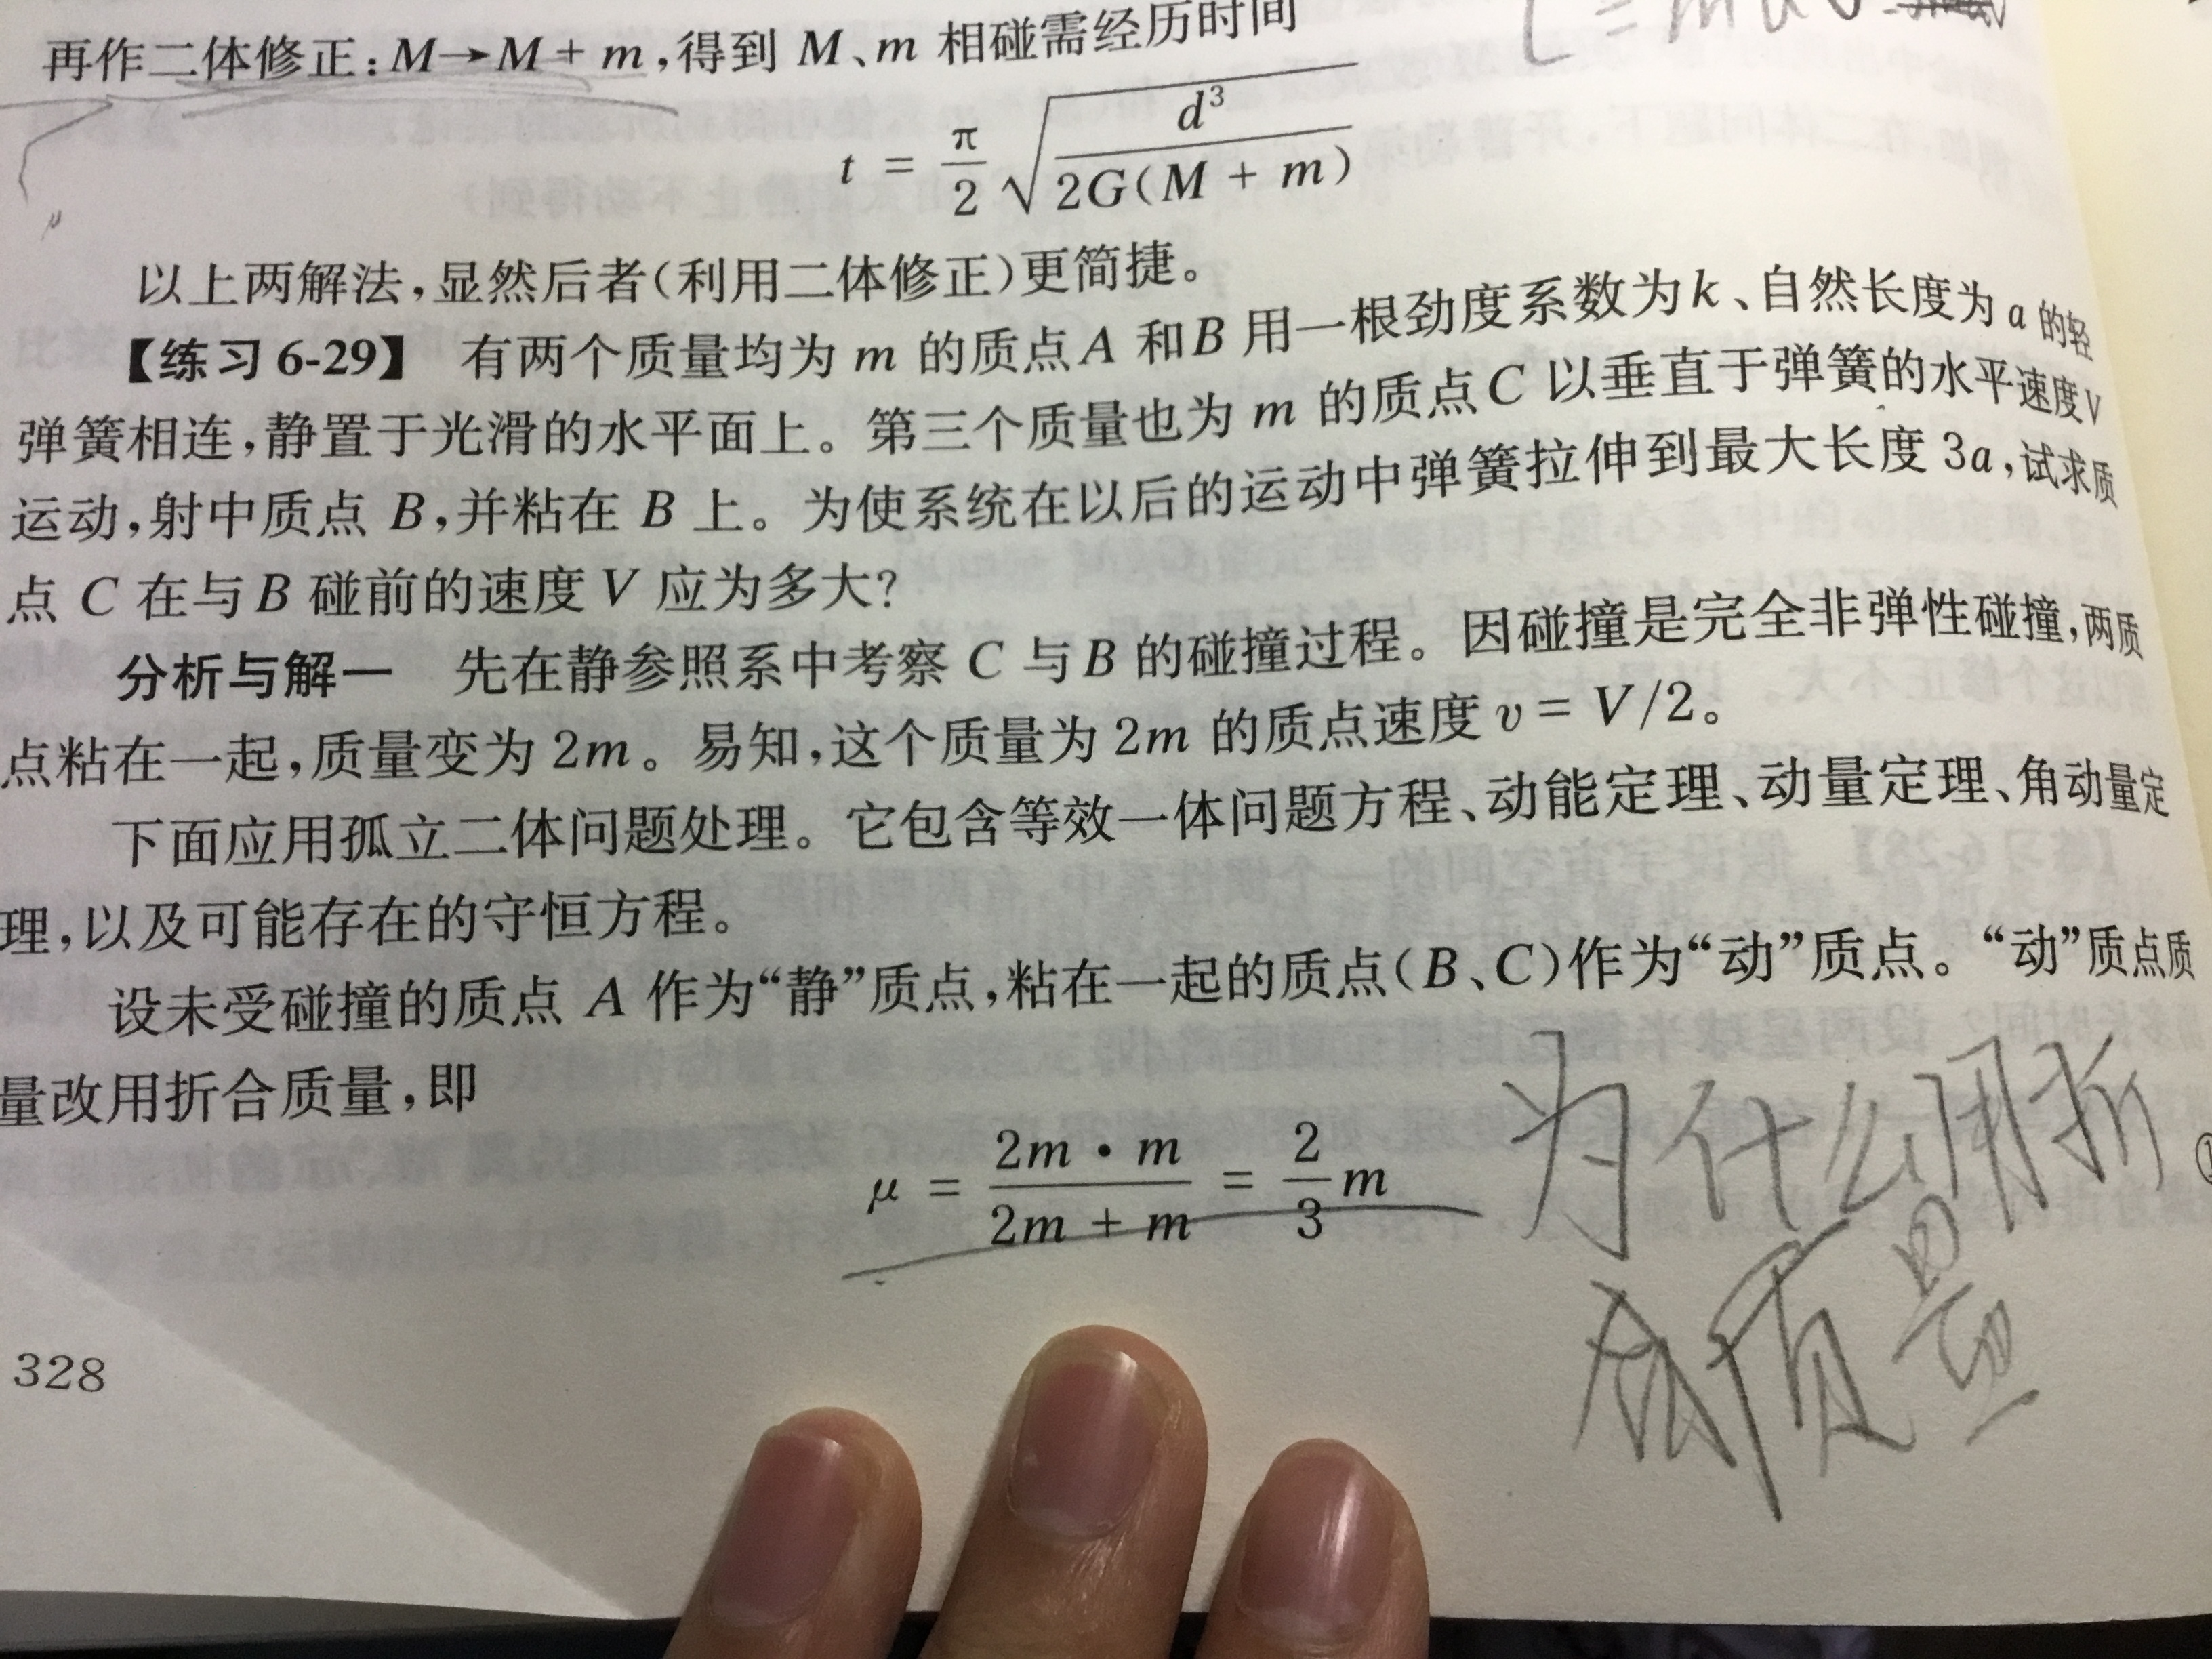 再作二体修正:M→M + m,得到 M、m 相碰需经历时间
t = \frac{π}{2} \sqrt{\frac{d^3}{2G(M + m)}}
以上两解法,显然后者(利用二体修正)更简捷。
【练习 6-29】 有两个质量均为 m 的质点A 和B 用一根劲度系数为k、自然长度为 a 的轻
弹簧相连,静置于光滑的水平面上。第三个质量也为 m 的质点C 以垂直于弹簧的水平速度V
运动,射中质点 B,并粘在 B 上。为使系统在以后的运动中弹簧拉伸到最大长度 3a,试求质
点 C 在与B 碰前的速度 V 应为多大?
分析与解一 先在静参照系中考察 C 与B 的碰撞过程。因碰撞是完全非弹性碰撞,两质
点粘在一起,质量变为 2m。易知,这个质量为 2m 的质点速度 v = V/2。
下面应用孤立二体问题处理。它包含等效一体问题方程、动能定理、动量定理、角动量定
理,以及可能存在的守恒方程。
设未受碰撞的质点 A 作为“静”质点,粘在一起的质点(B、C)作为“动”质点。“动”质点质
量改用折合质量,即
μ = \frac{2m · m}{2m + m} = \frac{2}{3}m ①
为什么用折
合质量
328